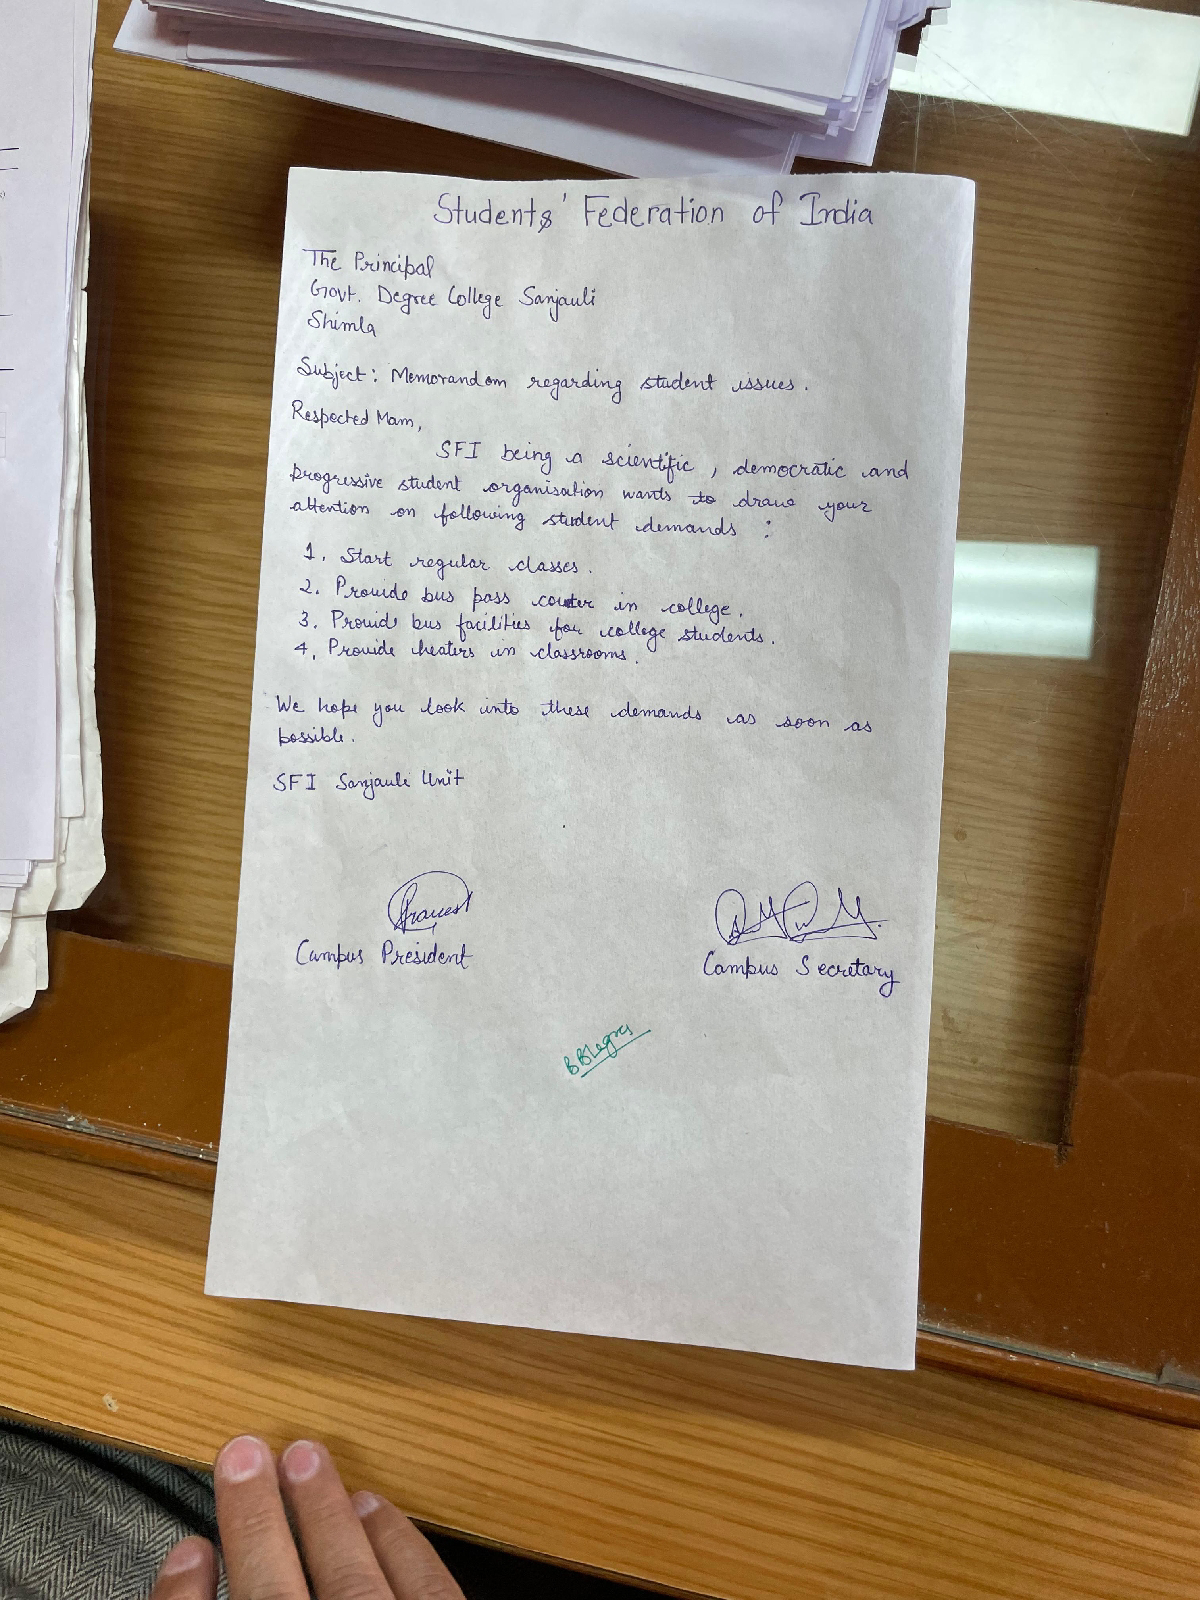 Students' Federation of India
The Principal
Govt. Degree College Sanjauli
Shimla
Subject: Memorandom regarding student issues.
Respected Mam,
SFI being a scientific, democratic and
progressive student organisation wants to draw your
attention on following student demands :
1. Start regular classes.
2. Provide bus pass couter in college.
3. Provide bus facilities for college students.
4. Provide heaters in classrooms.
We hope you look into these demands as soon as
possible.
SFI Sanjauli Unit
Campus President
Campus Secretary